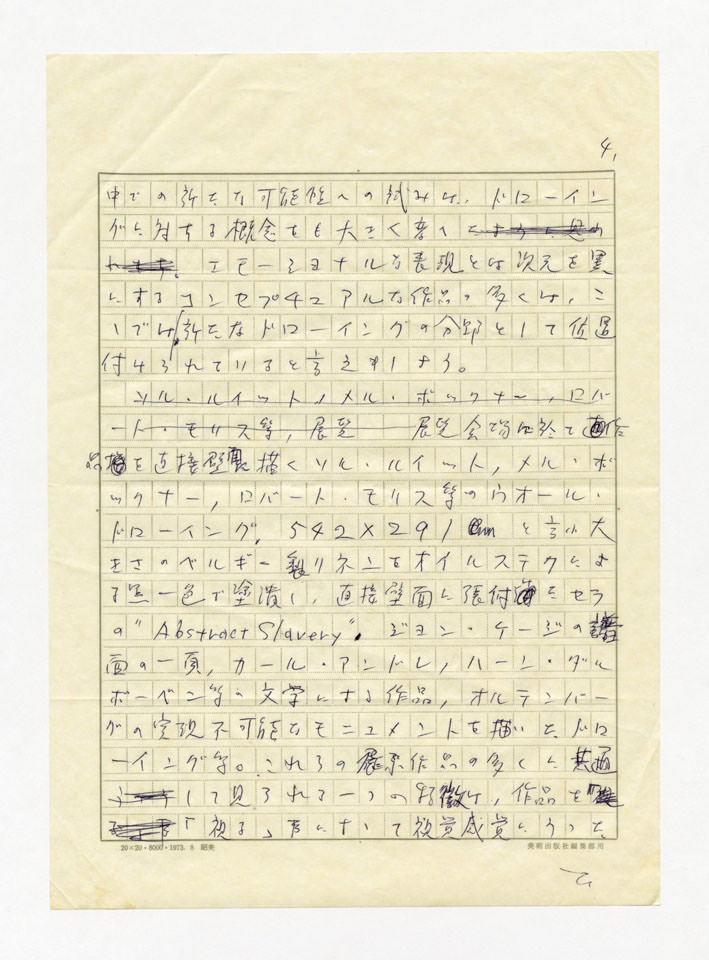 4.
中での新たな可能性への試みは、ドローイン
グに対する概念をも大きく変へ
エモーショナルな表現とは次元を異
にするコンセプチュアルな作品の多くは、こ
ゝでは新たなドローイングの分野として位置
付けられていると言えましょう。
ソル・ルイット、メル・ボックナー、ロバ
ート・モリス等、展覧 展覧会場に於て作
品を直接壁に描くソル・ルイット、メル・ボ
ックナー、ロバート・モリス等のウオール・
ドローイング、542×291cmと言ふ大
きさのベルギー製リネンをオイルステクによ
る黒一色で塗潰し、直接壁面に張付けたセラ
の"Abstract Slavery"、ジョン・ケージの譜
面の一頁、カール・アンドレ、ハーン・ダル
ボーベン等の文学による作品、オルデンバー
グの実現不可能なモニュメントを描いたドロ
ーイング等。これらの展示作品の多くに共通
して見られる一つの特徴は、作品を
「視る」事において視覚感覚にうった
20×20・8000・1973.8 昭美
美術出版社編集部用